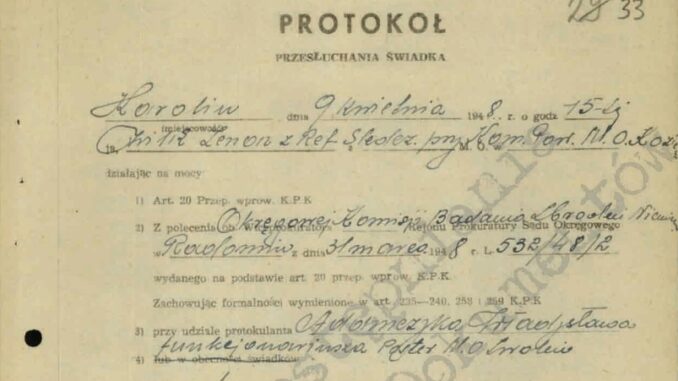 28 33
PROTOKÓŁ
PRZESŁUCHANIA ŚWIADKA
Karolin dnia 9 kwietnia 1948. r. o godz 15-tej
(miejscowość)
Ja, Wilk Zenon z Ref Śledcz. przy Kom. Pow. M.O.
działając na mocy
1) Art. 20 Przep. wprow. K.P.K
2) Z polecenia ob Okręgowej Komisji Badania Zbrodni
Rejonu Prokuratury Sądu Okręgowego
w Radomiu z dnia 31 marca 1948 r. L. 532/48/2
wydanego na podstawie art. 20 przep. wprow. K.P.K.
Zachowując formalności wymienione w art. 235—240, 258 i 259 K.P.K
3) przy udziale protokulanta Adamczyka Władysława
funkcjonariusza M.O.
4) lub w obecności świadków